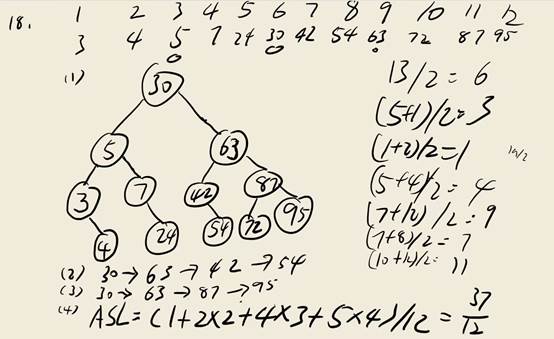 18. 1 2 3 4 5 6 7 8 9 10 11 12
3 4 5 7 24 30 42 54 63 72 87 95
(1)
30
5 63
3 7 42 87
4 24 54 72 95
13/2 = 6
(5+1)/2=3
(1+2)/2=1
(5+4)/2=4
(7+12)/2=9
(7+8)/2=7
(10+12)/2=11
(2) 30→63→42→54
(3) 30→63→87→95
(4) ASL=(1+2×2+4×3+5×4)/12=37/12